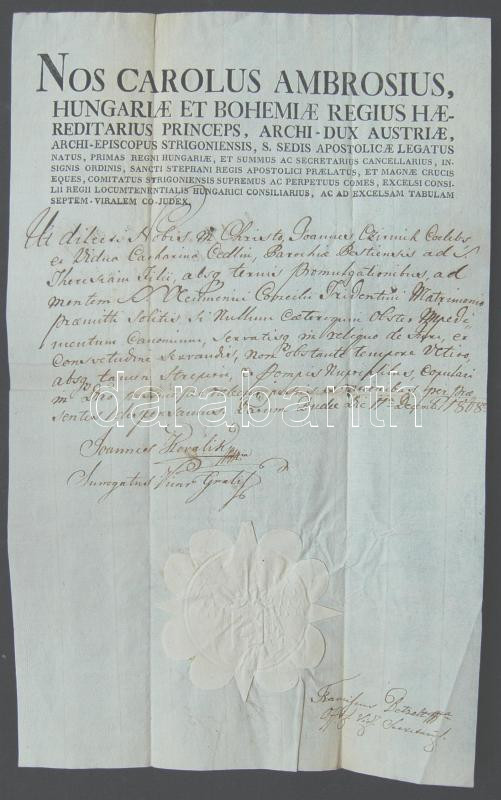 NOS CAROLUS AMBROSIUS,
HUNGARIÆ ET BOHEMIÆ REGIUS HÆ-
REDITARIUS PRINCEPS, ARCHI-DUX AUSTRIÆ,
ARCHI-EPISCOPUS STRIGONIENSIS, S. SEDIS APOSTOLICÆ LEGATUS
NATUS, PRIMAS REGNI HUNGARIÆ, ET SUMMUS AC SECRETARIUS CANCELLARIUS, IN-
SIGNIS ORDINIS, SANCTI STEPHANI REGIS APOSTOLICI PRÆLATUS, ET MAGNÆ CRUCIS
EQUES, COMITATUS STRIGONIENSIS SUPREMUS AC PERPETUUS COMES, EXCELSI CONSI-
LII REGII LOCUMTENENTIALIS HUNGARICI CONSILIARIUS, AC AD EXCELSAM TABULAM
SEPTEM-VIRALEM CO-JUDEX,
Ut dilecti Nobis in Christo, Joannes Czirnich Coelebs
ex Vidua Catharina Cedlin, Parochiæ Pestiensis ad S.
Theresiam Filii, absq ternis Promulgationibus, ad
mentem S. Oecumenici Concilii Tridentini Matrimonio
præmitti solitis, si Nullum Cæteroquin Obstet Impedi-
mentum Canonicum, servatisq in reliquo de Jure, et
Consvetudine servandis, Non obstante tempore Vetito,
absq tamen Strepitu, et Pompis Nuptialibus, Copulari
in per præ
sentes dispensamus. Datum Budæ Die 11ª Decemb. 1808
Joannes Kovalik
Surrogatus Vicar Gralis
Franciscus
Secretarius
darabanth